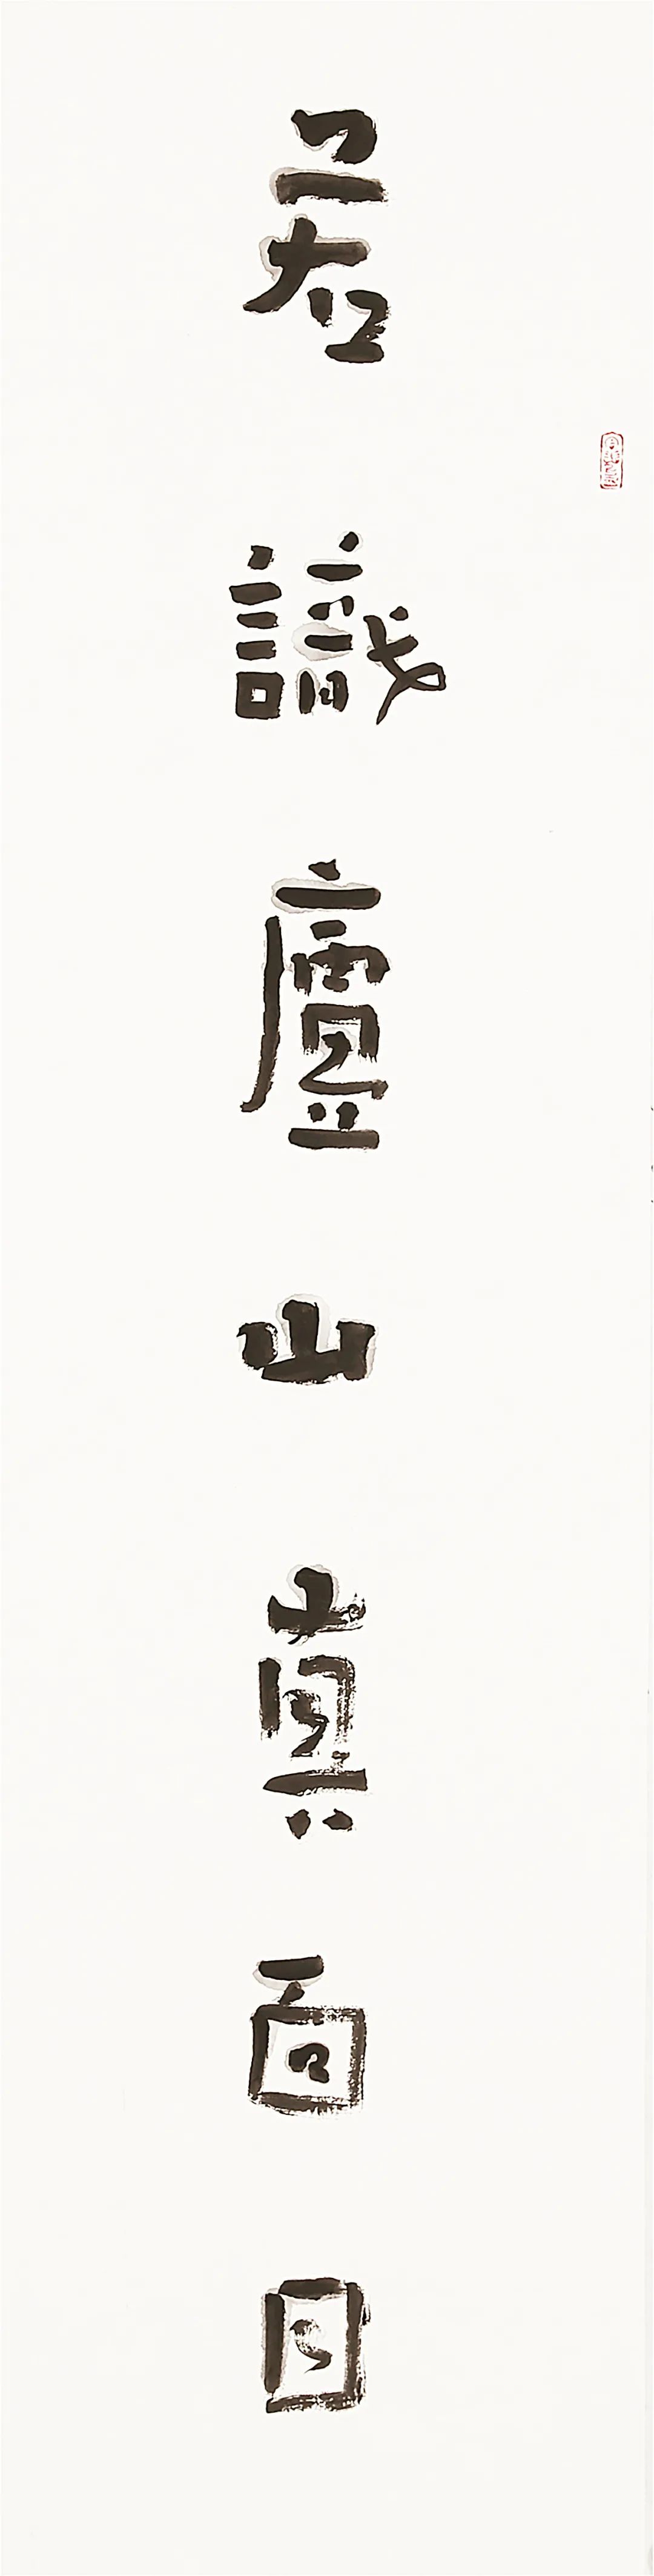 若識廬山真面目